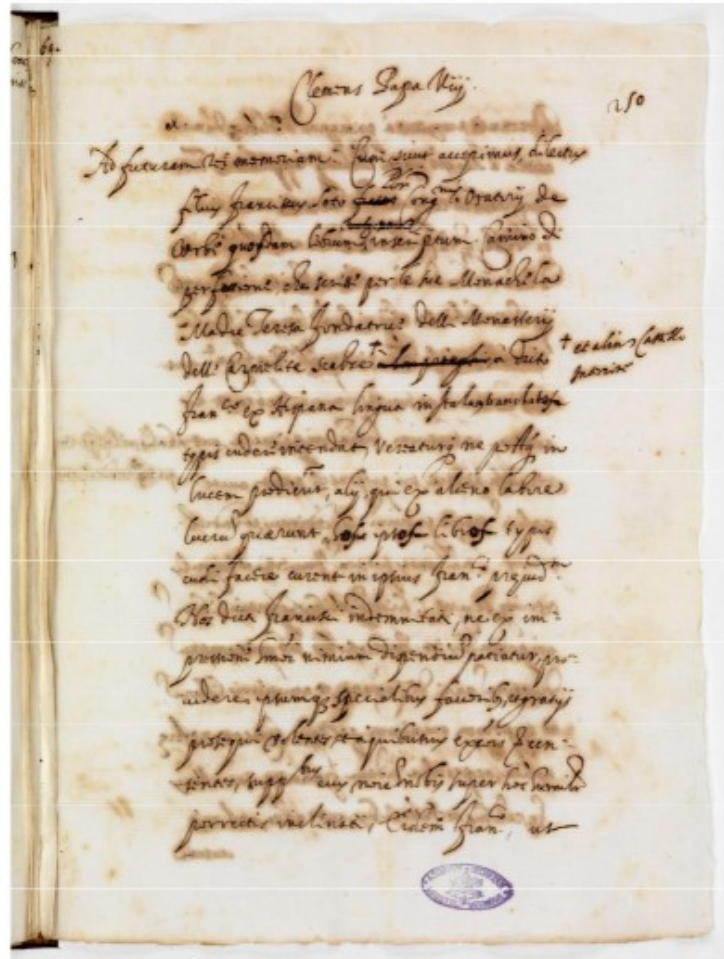 69.
Clemens Papa Viij.
250
Ad futuram rei memoriam. Cum sicut accepimus, dilectus
filius Franciscus Soto Congnis Oratorij de
Urbe quosdam inscriptum Camino di
perfettione, che scrisse per le sue Monache la
Madre Teresa fondatrice delli Monasterij
delle Carmelite scalze † a dicto
† et alias Castello
interiore
Franco ex Hispana lingua in Italam translatos
typis cudere intendat, vereaturq ne postq in
lucem prodierint, alij, qui ex alieno labore
lucrum quaerunt, hos ipsos libros typis
cudi facere curent in ipsius Franci prejudm
Nos dicti Francisci indemnitati, ne ex im=
pressione nimium dispendium patiatur, pro=
videre, ipsumq specialibus favoribus, et gratijs
prosequi volentes, et a quibusvis excois
censentes, suppbus eius noie nobis super hoc humilr
porrectis inclinati, Eidem Franco, ut